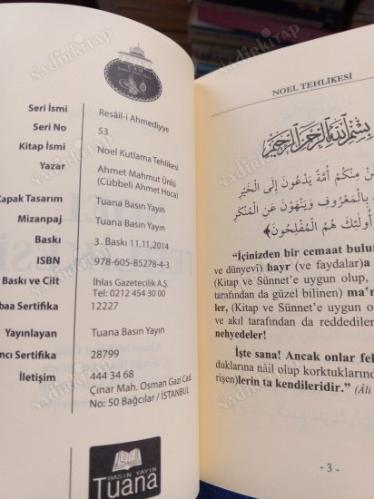 Seri İsmi Resâil-i Ahmediyye
Seri No 53
Kitap İsmi Noel Kutlama Tehlikesi
Yazar Ahmet Mahmut Ünlü
(Cübbeli Ahmet Hoca)
Kapak Tasarım Tuana Basın Yayın
Mizanpaj Tuana Basın Yayın
Baskı 3. Baskı 11,11,2014
ISBN 978-605-85278-4-3
Baskı ve Cilt İhlas Gazetecilik A.Ş.
Tel: 0212 454 30 00
baa Sertifika 12227
Yayınlayan Tuana Basın Yayın
ncı Sertifika 28799
İletişim 444 34 68
Çınar Mah. Osman Gazi Cad.
No: 50 Bağcılar / İSTANBUL
BASIN YAYIN
Tuana
NOEL TEHLİKESİ
بِسْمِ اللّٰهِ الرَّحْمٰنِ الرَّحِيمِ
مِنْكُمْ أُمَّةٌ يَدْعُونَ إِلَى الْخَيْرِ
بِالْمَعْرُوفِ وَيَنْهَوْنَ عَنِ الْمُنْكَرِ
أُولٰئِكَ هُمُ الْمُفْلِحُونَ﴾
“İçinizden bir cemaat bulun
ve dünyevî) hayr (ve faydalar)a
(Kitap ve Sünnet'e uygun olup,
tarafından da güzel bilinen) ma
ler, (Kitap ve Sünnet'e uygun o
ve akıl tarafından da reddedilen
nehyedeler!
İşte sana! Ancak onlar fel
duklarına nâil olup korktuklarından
rişen)lerin ta kendileridir.” (Âli
- 3 -
nadirkitap